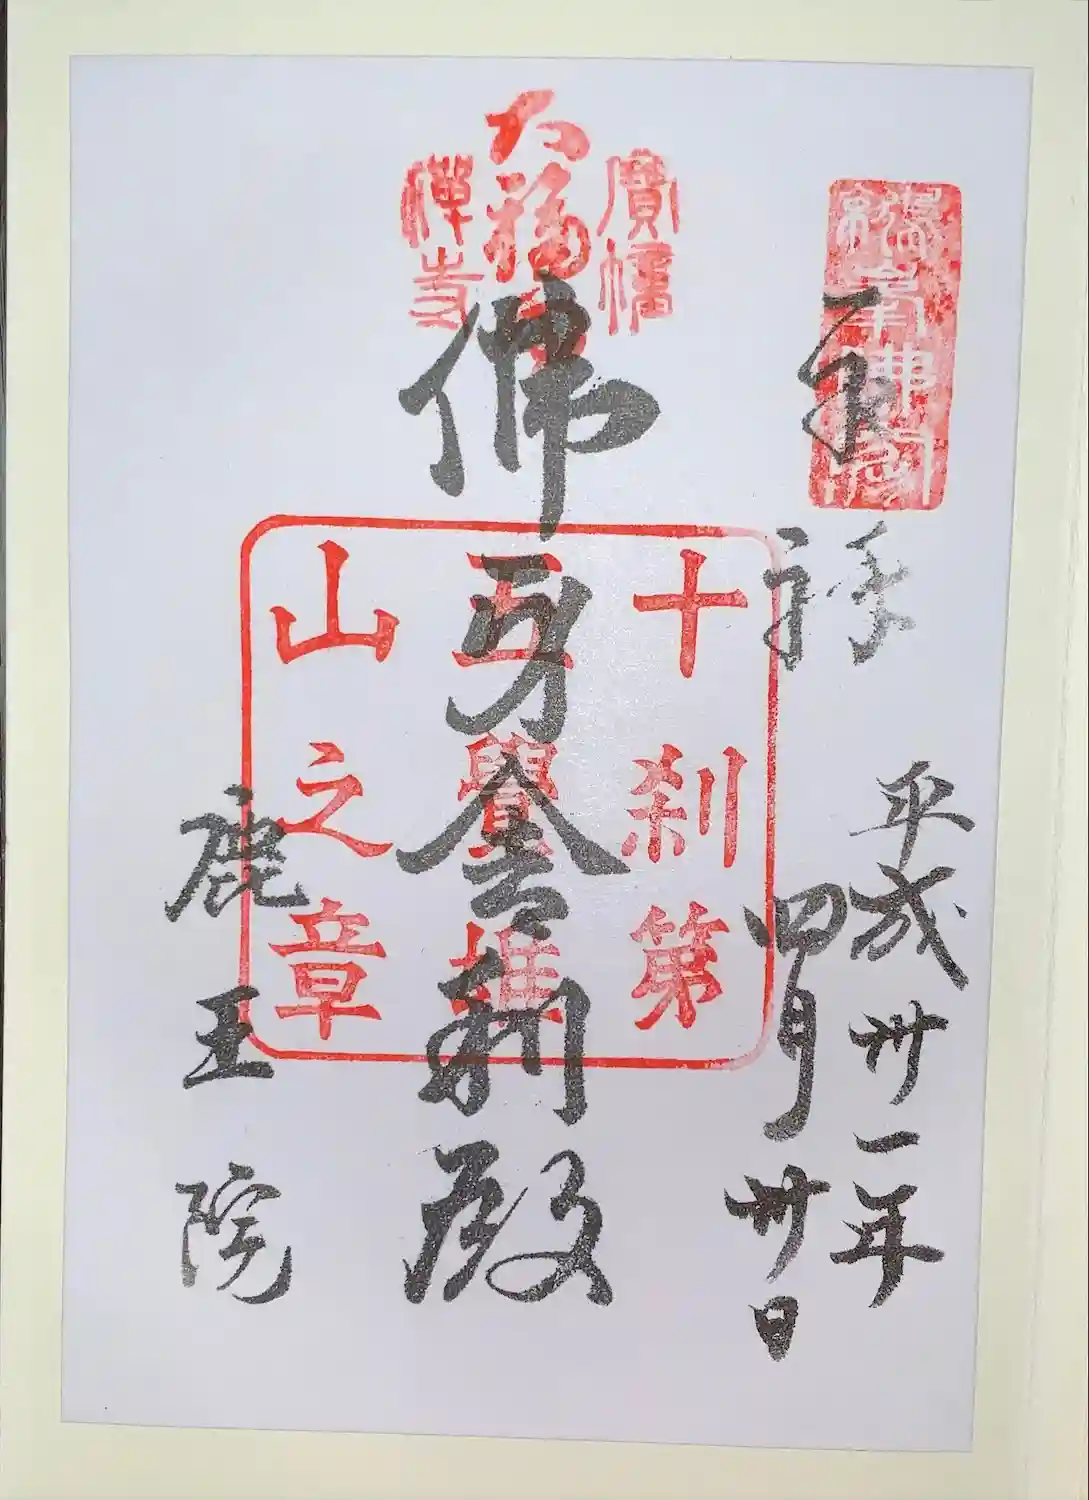 奉拝
平成卅一年
四月卅日
寶幢
大福田
禪寺
十刹第
五覺雄
山之章
佛牙舎利殿
鹿王院